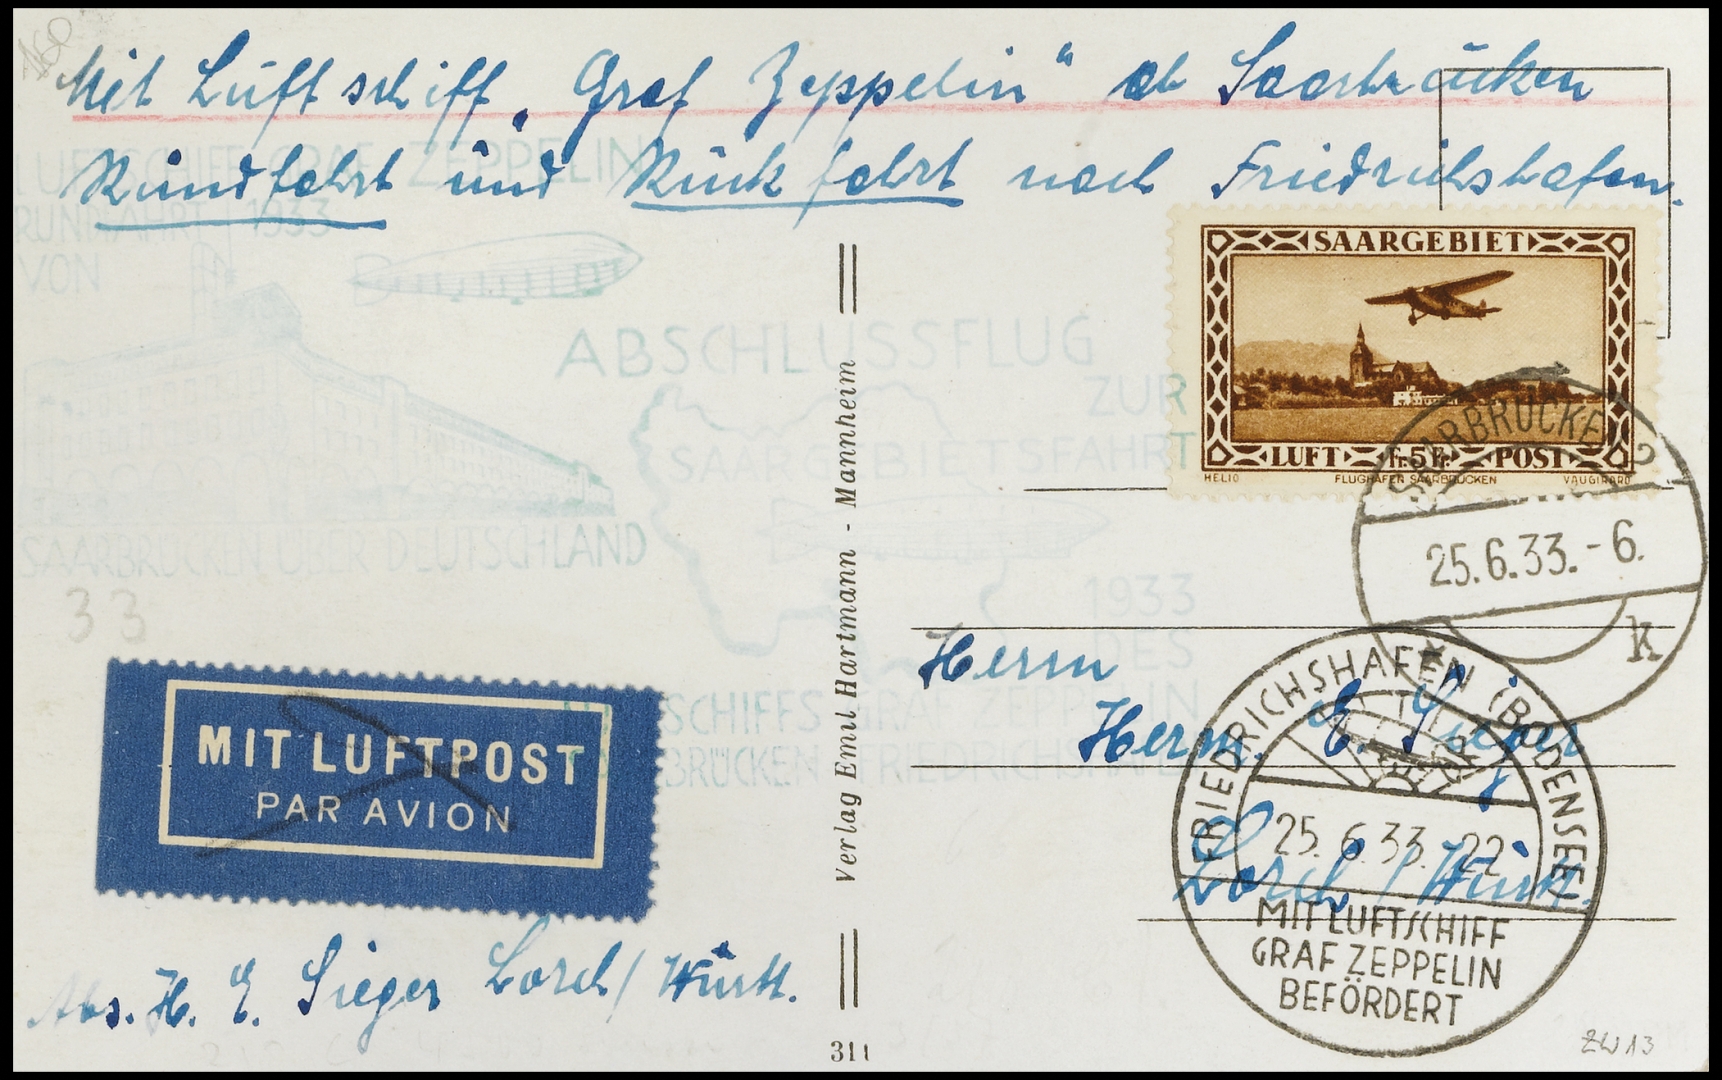 160
Mit Luftschiff „Graf Zeppelin" ab Saarbrücken
Rundfahrt und Rückfahrt nach Friedrichshafen.
LUFTSCHIFF GRAF ZEPPELIN
RUNDFAHRT 1933
VON
SAARBRÜCKEN ÜBER DEUTSCHLAND
ABSCHLUSSFLUG
ZUR
SAARGEBIETSFAHRT
1933
DES
LUFTSCHIFFS GRAF ZEPPELIN
SAARBRÜCKEN FRIEDRICHSHAFEN
SAARGEBIET
LUFT Fr. 5 Fr. POST
HELIO FLUGHAFEN SAARBRÜCKEN VAUGIRARD
SAARBRÜCKEN 2
25.6.33.-6.
k
33
MIT LUFTPOST
PAR AVION
Verlag Emil Hartmann - Mannheim
Herrn
Herm. E. Sieger
Lorch / Württ.
FRIEDRICHSHAFEN (BODENSEE)
25.6.33. 22
MIT LUFTSCHIFF
GRAF ZEPPELIN
BEFÖRDERT
Abs. H. E. Sieger Lorch / Württ.
311
ZW13